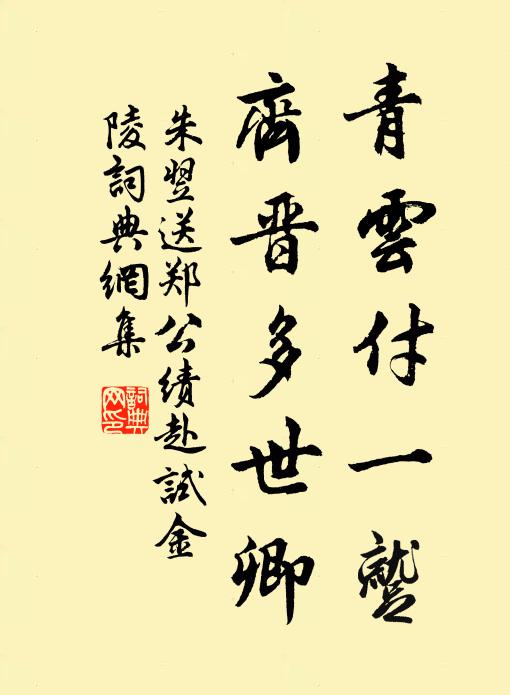 青雲付一蹵
齊晋多世卿
朱翌送郑公績赴試金
陵詞典網集
詞典
网印